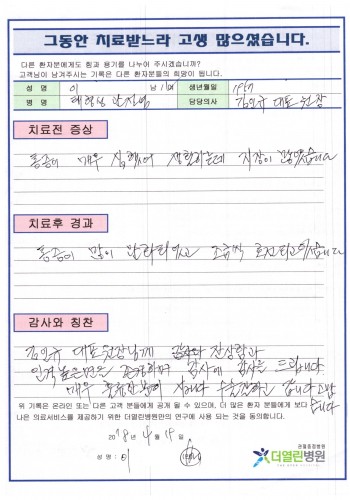 그동안 치료받느라 고생 많으셨습니다.
다른 환자분에게도 힘과 용기를 나누어 주시겠습니까?
고객님이 남겨주시는 기록은 다른 환자분들의 희망이 됩니다.
성 명 이 남/여 생년월일
병 명 퇴행성 관절염 담당의사 김인규 대표원장
치료전 증상
통증이 매우 심했어 생활하는데 지장이 많았습니다
치료후 경과
통증이 많이 완화되었고 조금씩 호전되고 있습니다
감사와 칭찬
김인규 대표원장님께 감사와 찬사함과
매우
위 기록은 온라인 또는 다른 고객 분들에게 공개 될 수 있으며, 더 많은 환자 분들에게 보다
나은 의료서비스를 제공하기 위한 더열린병원만의 연구에 사용 되는 것을 동의합니다.
2018년 4월 14일
성 명: 이 (인)
관절중점병원
더열린병원